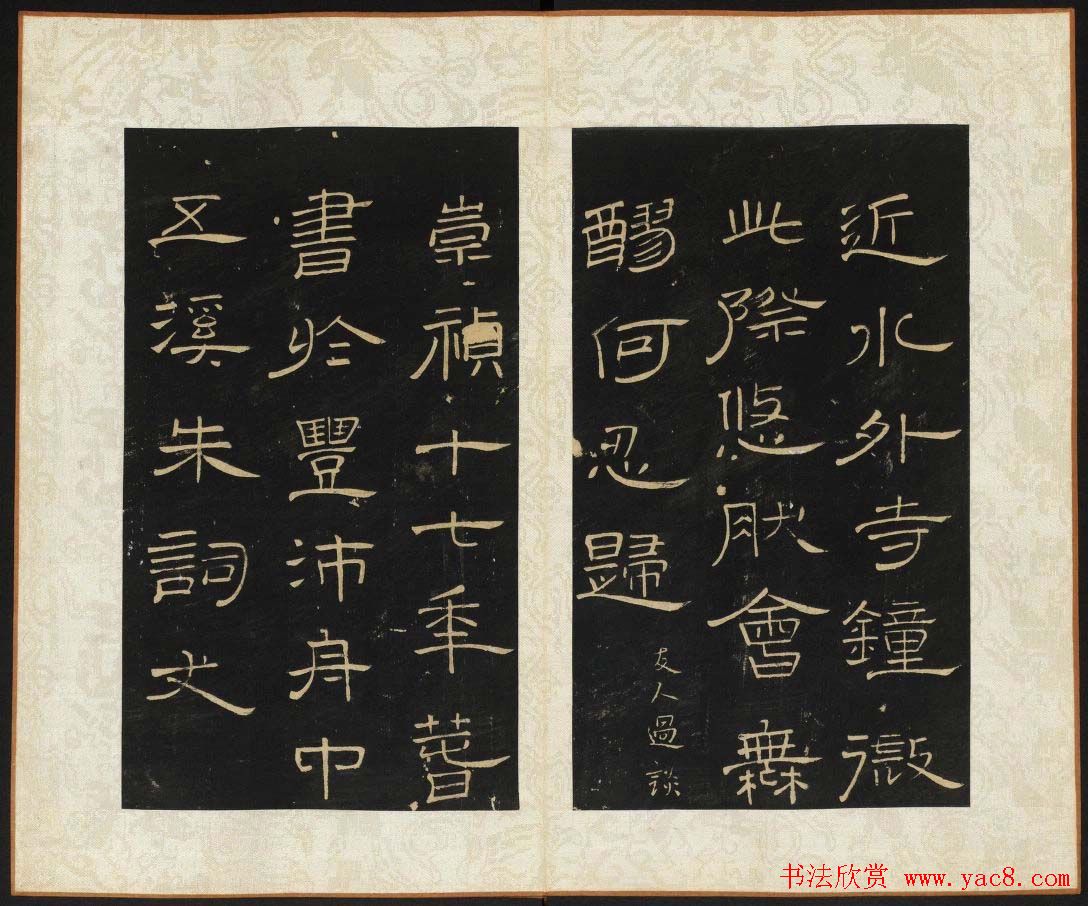 近水外寺鐘微
此際悠肰會無
醪何忍歸
友人過談
崇禎十七年萅
書於豐沛舟中
五溪朱詞文
书法欣赏 www.yac8.com